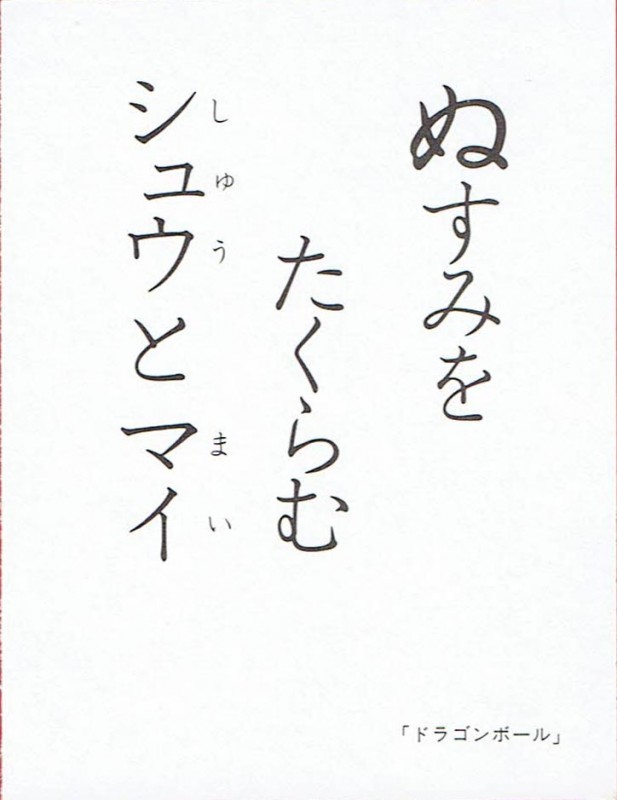 ぬすみを
たくらむ
シュウとマイ
しゅう
まい
「ドラゴンボール」